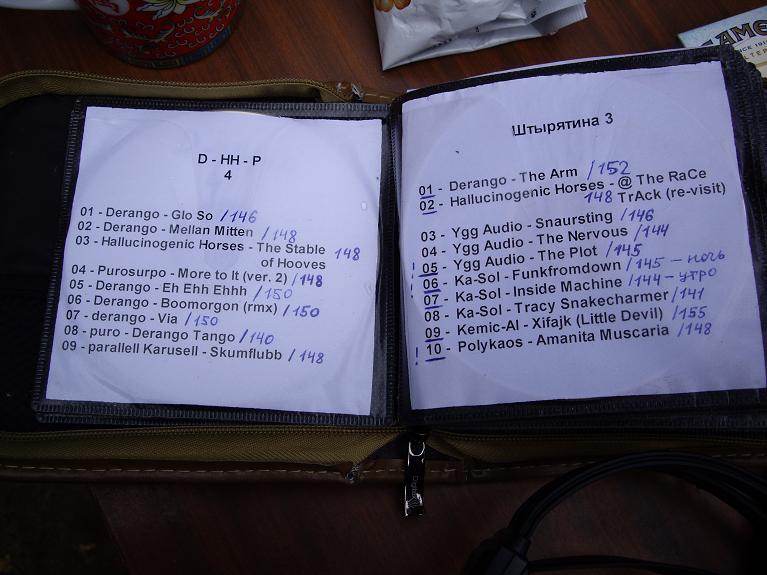 D - HH - P
4
01 - Derango - Glo So /146
02 - Derango - Mellan Mitten /148
03 - Hallucinogenic Horses - The Stable 148
of Hooves
04 - Purosurpo - More to It (ver. 2) /148
05 - Derango - Eh Ehh Ehhh /150
06 - Derango - Boomorgon (rmx) /150
07 - derango - Via /150
08 - puro - Derango Tango /140
09 - parallell Karusell - Skumflubb /148
Штырятина 3
01 - Derango - The Arm /152
02 - Hallucinogenic Horses - @ The RaCe
148 TrAck (re-visit)
03 - Ygg Audio - Snaursting /146
04 - Ygg Audio - The Nervous /144
! 05 - Ygg Audio - The Plot /145
! 06 - Ka-Sol - Funkfromdown /145 - ночь
07 - Ka-Sol - Inside Machine /144 - утро
08 - Ka-Sol - Tracy Snakecharmer /141
09 - Kemic-Al - Xifajk (Little Devil) /155
! 10 - Polykaos - Amanita Muscaria /148
CAMEL
SINCE 1913